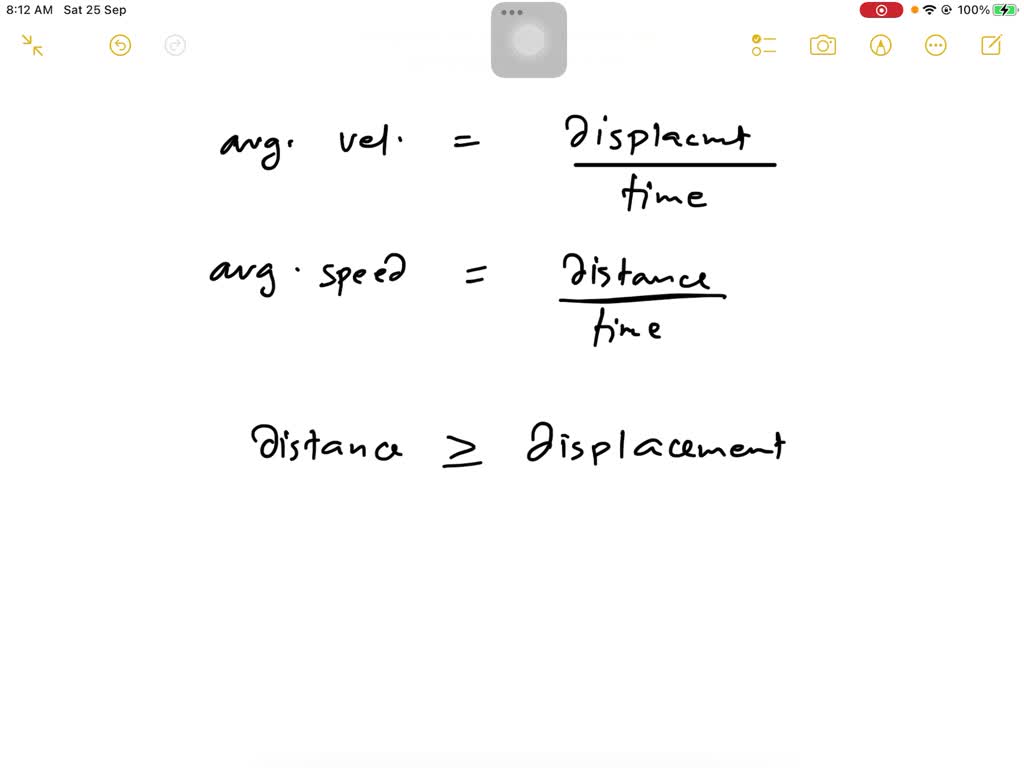 8:12 AM Sat 25 Sep 100%
avg. vel. = displacmt
time
avg. speed = distance
time
distance ≥ displacement